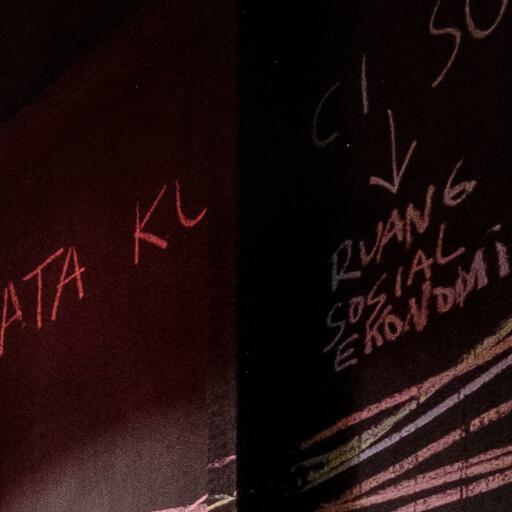 ATA KU
CI SO
RUANG
SOSIAL
EKONOMi